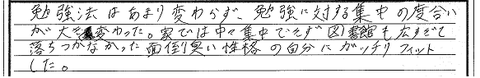 勉強法はあまり変わらず、勉強に対する集中の度合い
が大変わった。家では中々集中できず図書館も広すぎて
落ちつかなかった面倒臭い性格の自分にガッチリフィット
した。